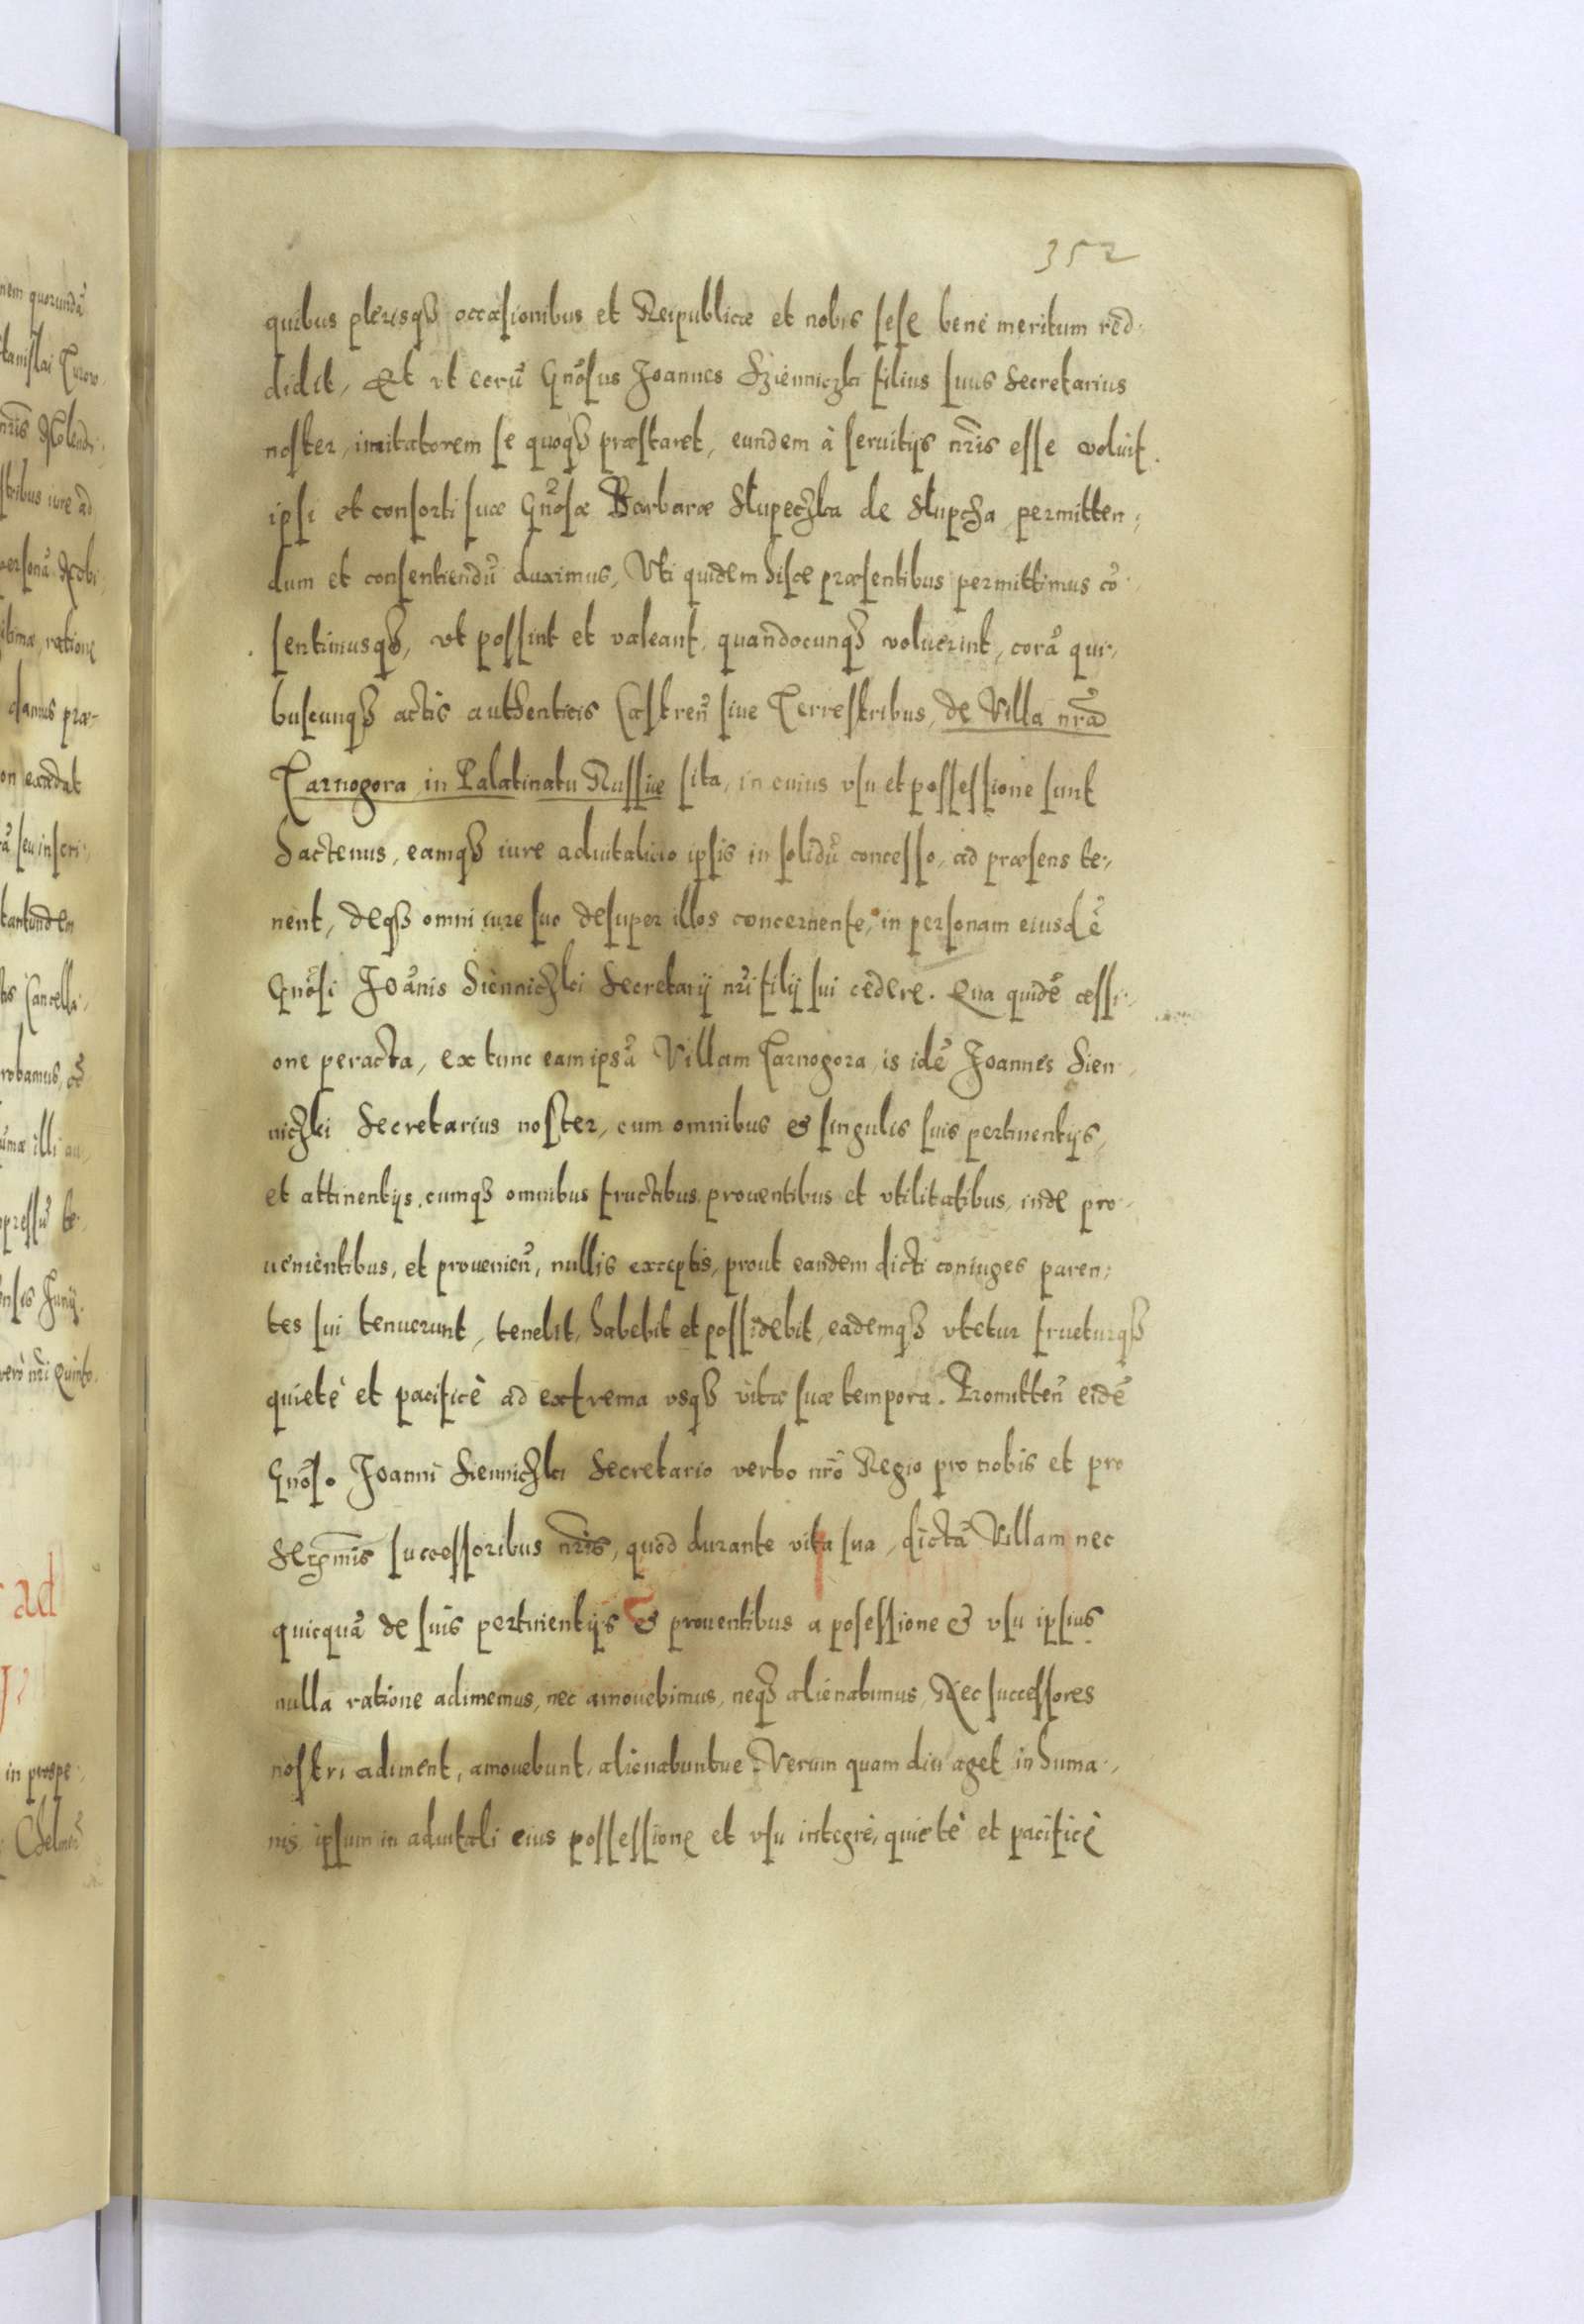 352
quibus plerisqȝ occasionibus et Reipublicæ et nobis sese bene meritum red-
didit, Et vt ceru᷑ Gnosus Joannes Szienniczki filius suus Secretarius
noster, imitatorem se quoqȝ præstaret, eundem à seruitijs nr̃is esse voluit.
ipsi et consorti suæ Gnosæ Barbaræ Słupeczka de Słupcza permitten-
dum et consentiendũ duximus, Vti quidem hisce præsentibus permittimus cõ-
sentimusqȝ, vt possint et valeant, quandocunqȝ voluerint, corã qui-
buscunqȝ actis authenticis Castreñ siue Terrestribus, de Villa nr̃a
Tarnogora in Palatinatu Russiæ sita, in cuius vsu et possessione sunt
hactenus, eamqȝ iure aduitalicio ipsis in solidũ concesso, ad præsens te-
nent, deqȝ omni iure suo desuper illos concernente, in personam eiusdẽ
Gnosi Joãnis Sienniczki Secretarij nr̃i filij sui cedere. Qua quidẽ cessi-
one peracta, ex tunc eam ipsã Villam Tarnogora, is idẽ Joannes Sien-
niczki Secretarius noster, cum omnibus & singulis suis pertinentijs,
et attinentijs, cumqȝ omnibus fructibus prouentibus et vtilitatibus, inde pro-
uenientibus, et prouenieñ, nullis exceptis, prout eandem dicti coniuges paren-
tes sui tenuerunt, tenebit, habebit et possidebit, eademqȝ vtetur frueturqȝ
quietè et pacificè ad extrema vsqȝ vitæ suæ tempora. Promitteñ eidẽ
Gnoso Joanni Sienniczki Secretario verbo nr̃o Regio pro nobis et pro
Serẽmis successoribus nr̃is, quod durante vita sua, dictã Villam nec
quicquã de suis pertinentijs & prouentibus a posessione & vsu ipsius
nulla ratione adimemus, nec amouebimus, neqȝ alienabimus, Nec successores
nostri adiment, amouebunt, alienabuntue. Verum quam diu aget in huma-
nis ipsum in aduitali eius possessione et vsu integrè, quietè et pacificè